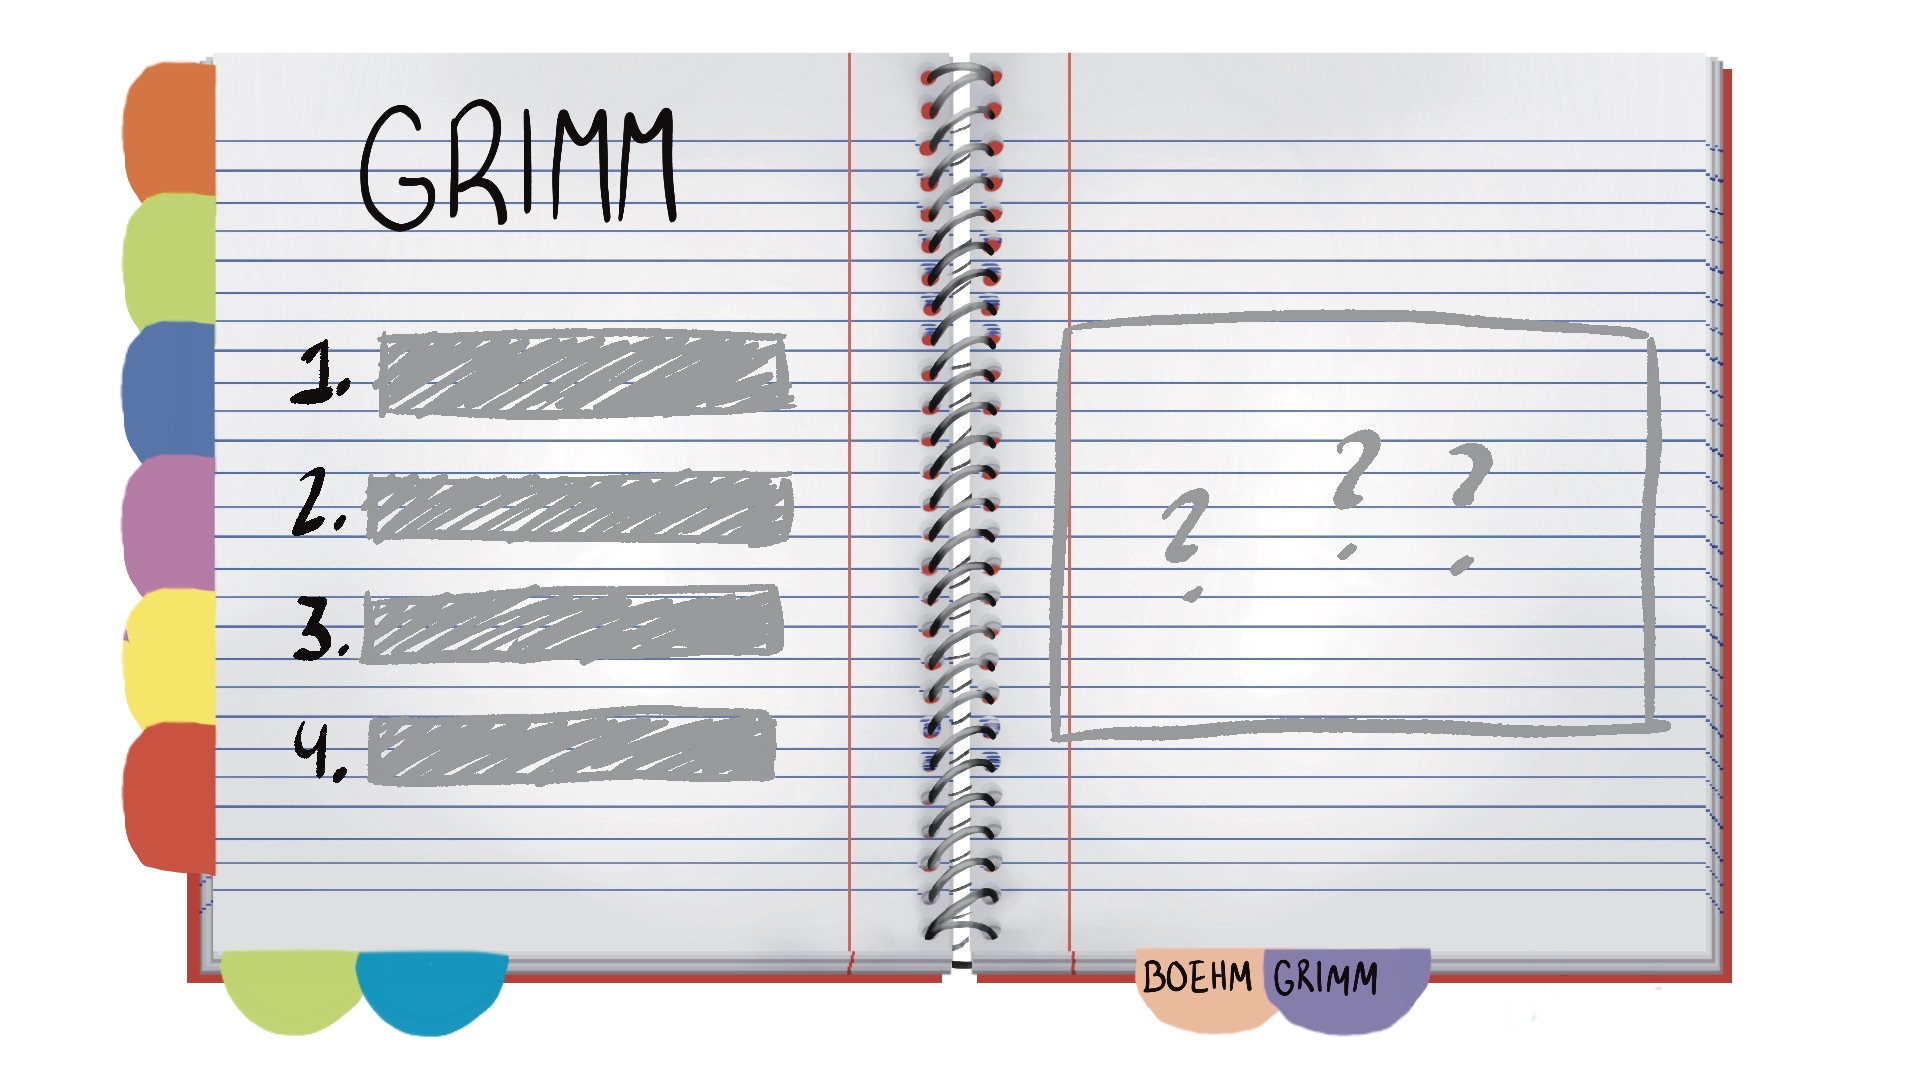 GRIMM
1.
2.
3.
4.
? ? ?
BOEHM GRIMM